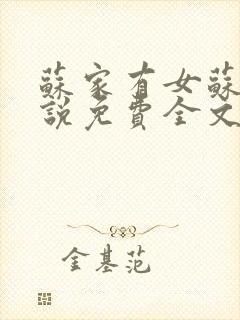 蘇家有女蘇
說免費全文
金基范